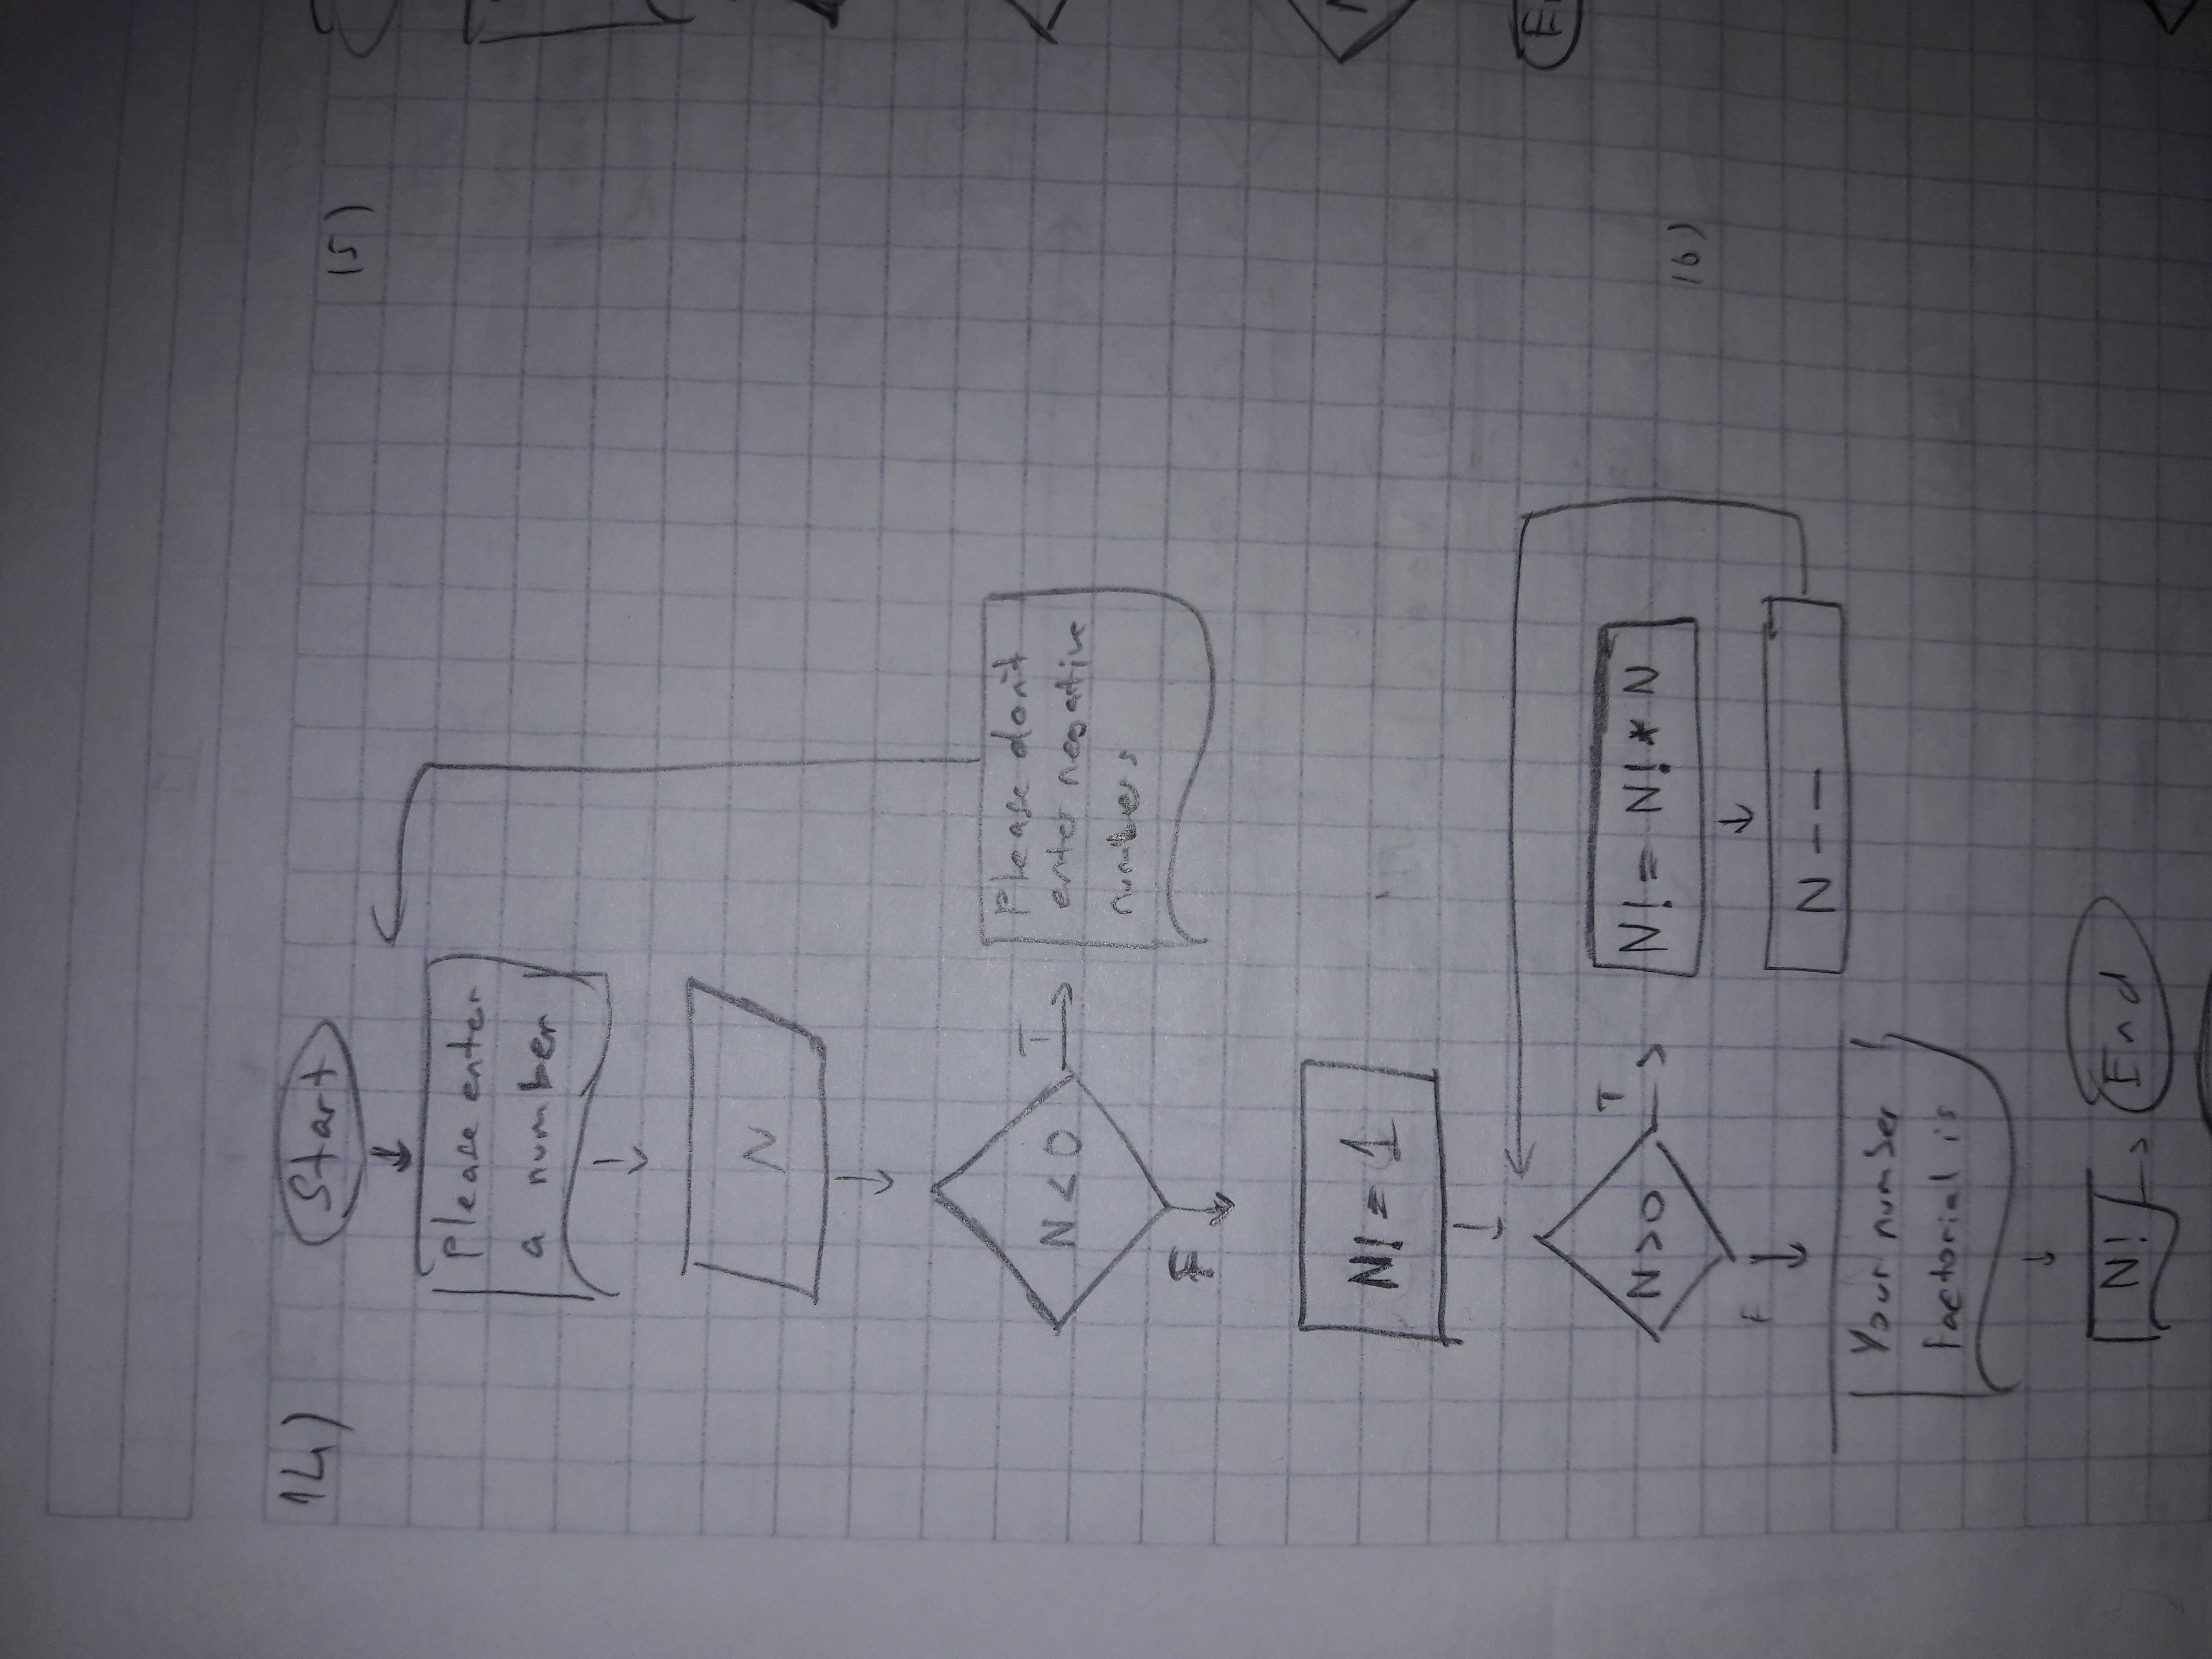 14)
Start
Please enter
a number
N
N < 0
T
Please don't
enter negative
numbers
F
N! = 1
N>0
T
N! = N! * N
N - -
F
Your number
factorial is
N!
End
15)
16)